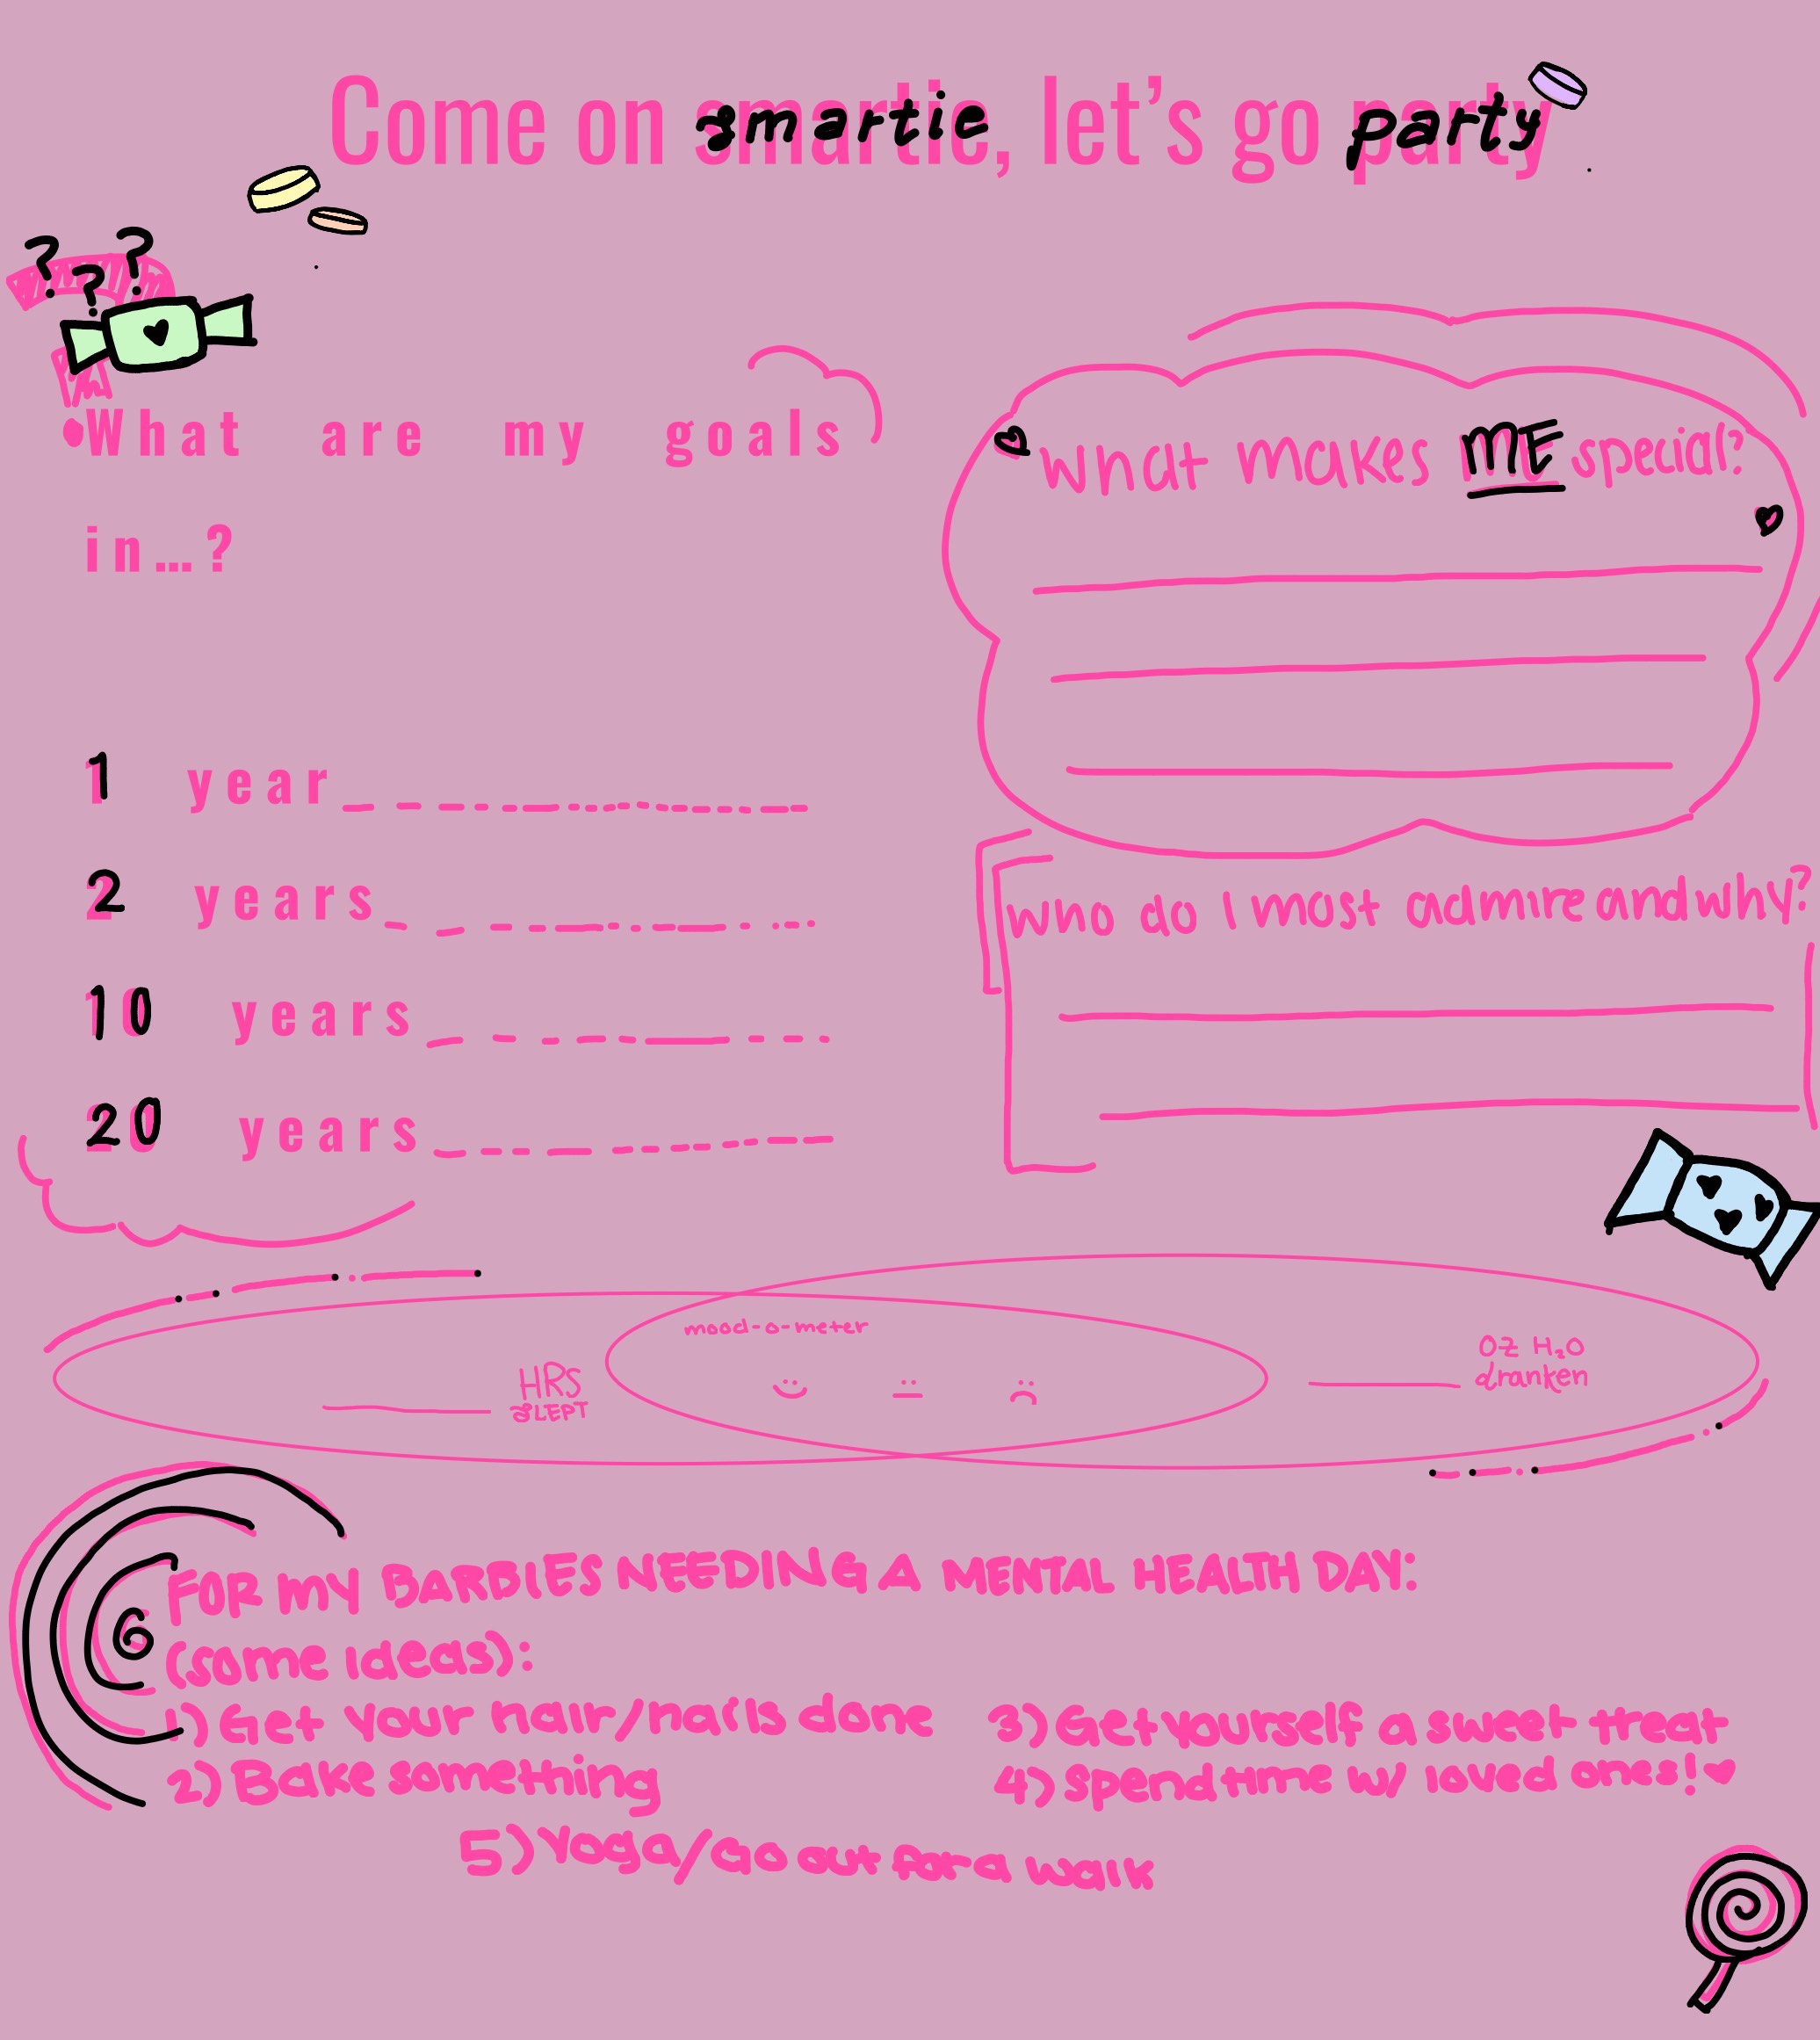 Come on smartie, let's go party
? ? ?
•What are my goals
in....?
1 year
2 years
10 years
20 years
What makes ME special?
Who do I most admire and why?
HRS
SLEPT
mood-o-meter
OZ H₂O
dranken
FOR MY BARBIES NEEDING A MENTAL HEALTH DAY:
(some ideas):
1) Get your hair/nails done
2) Bake something
3) Get yourself a sweet treat
4) Spend time w/ loved ones! ♥
5) Yoga/Go out for a walk